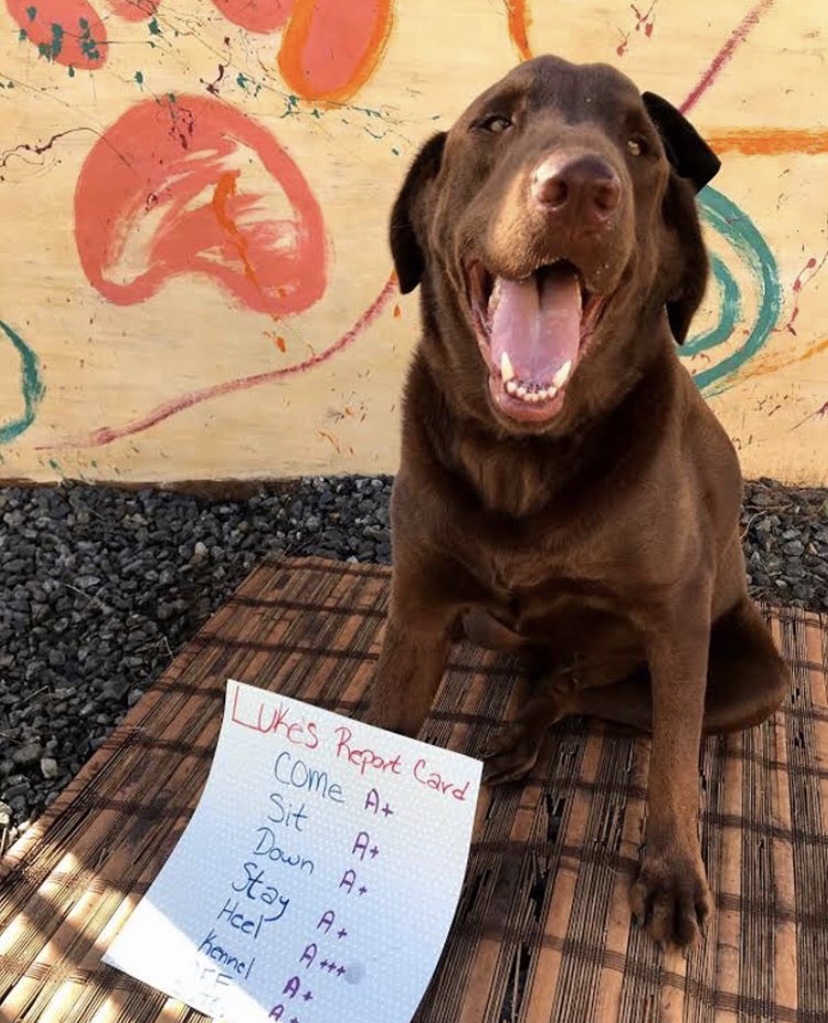 Luke's Report Card
Come A+
Sit A+
Down A+
Stay A+
Heel A+++
Kennel A+
A+